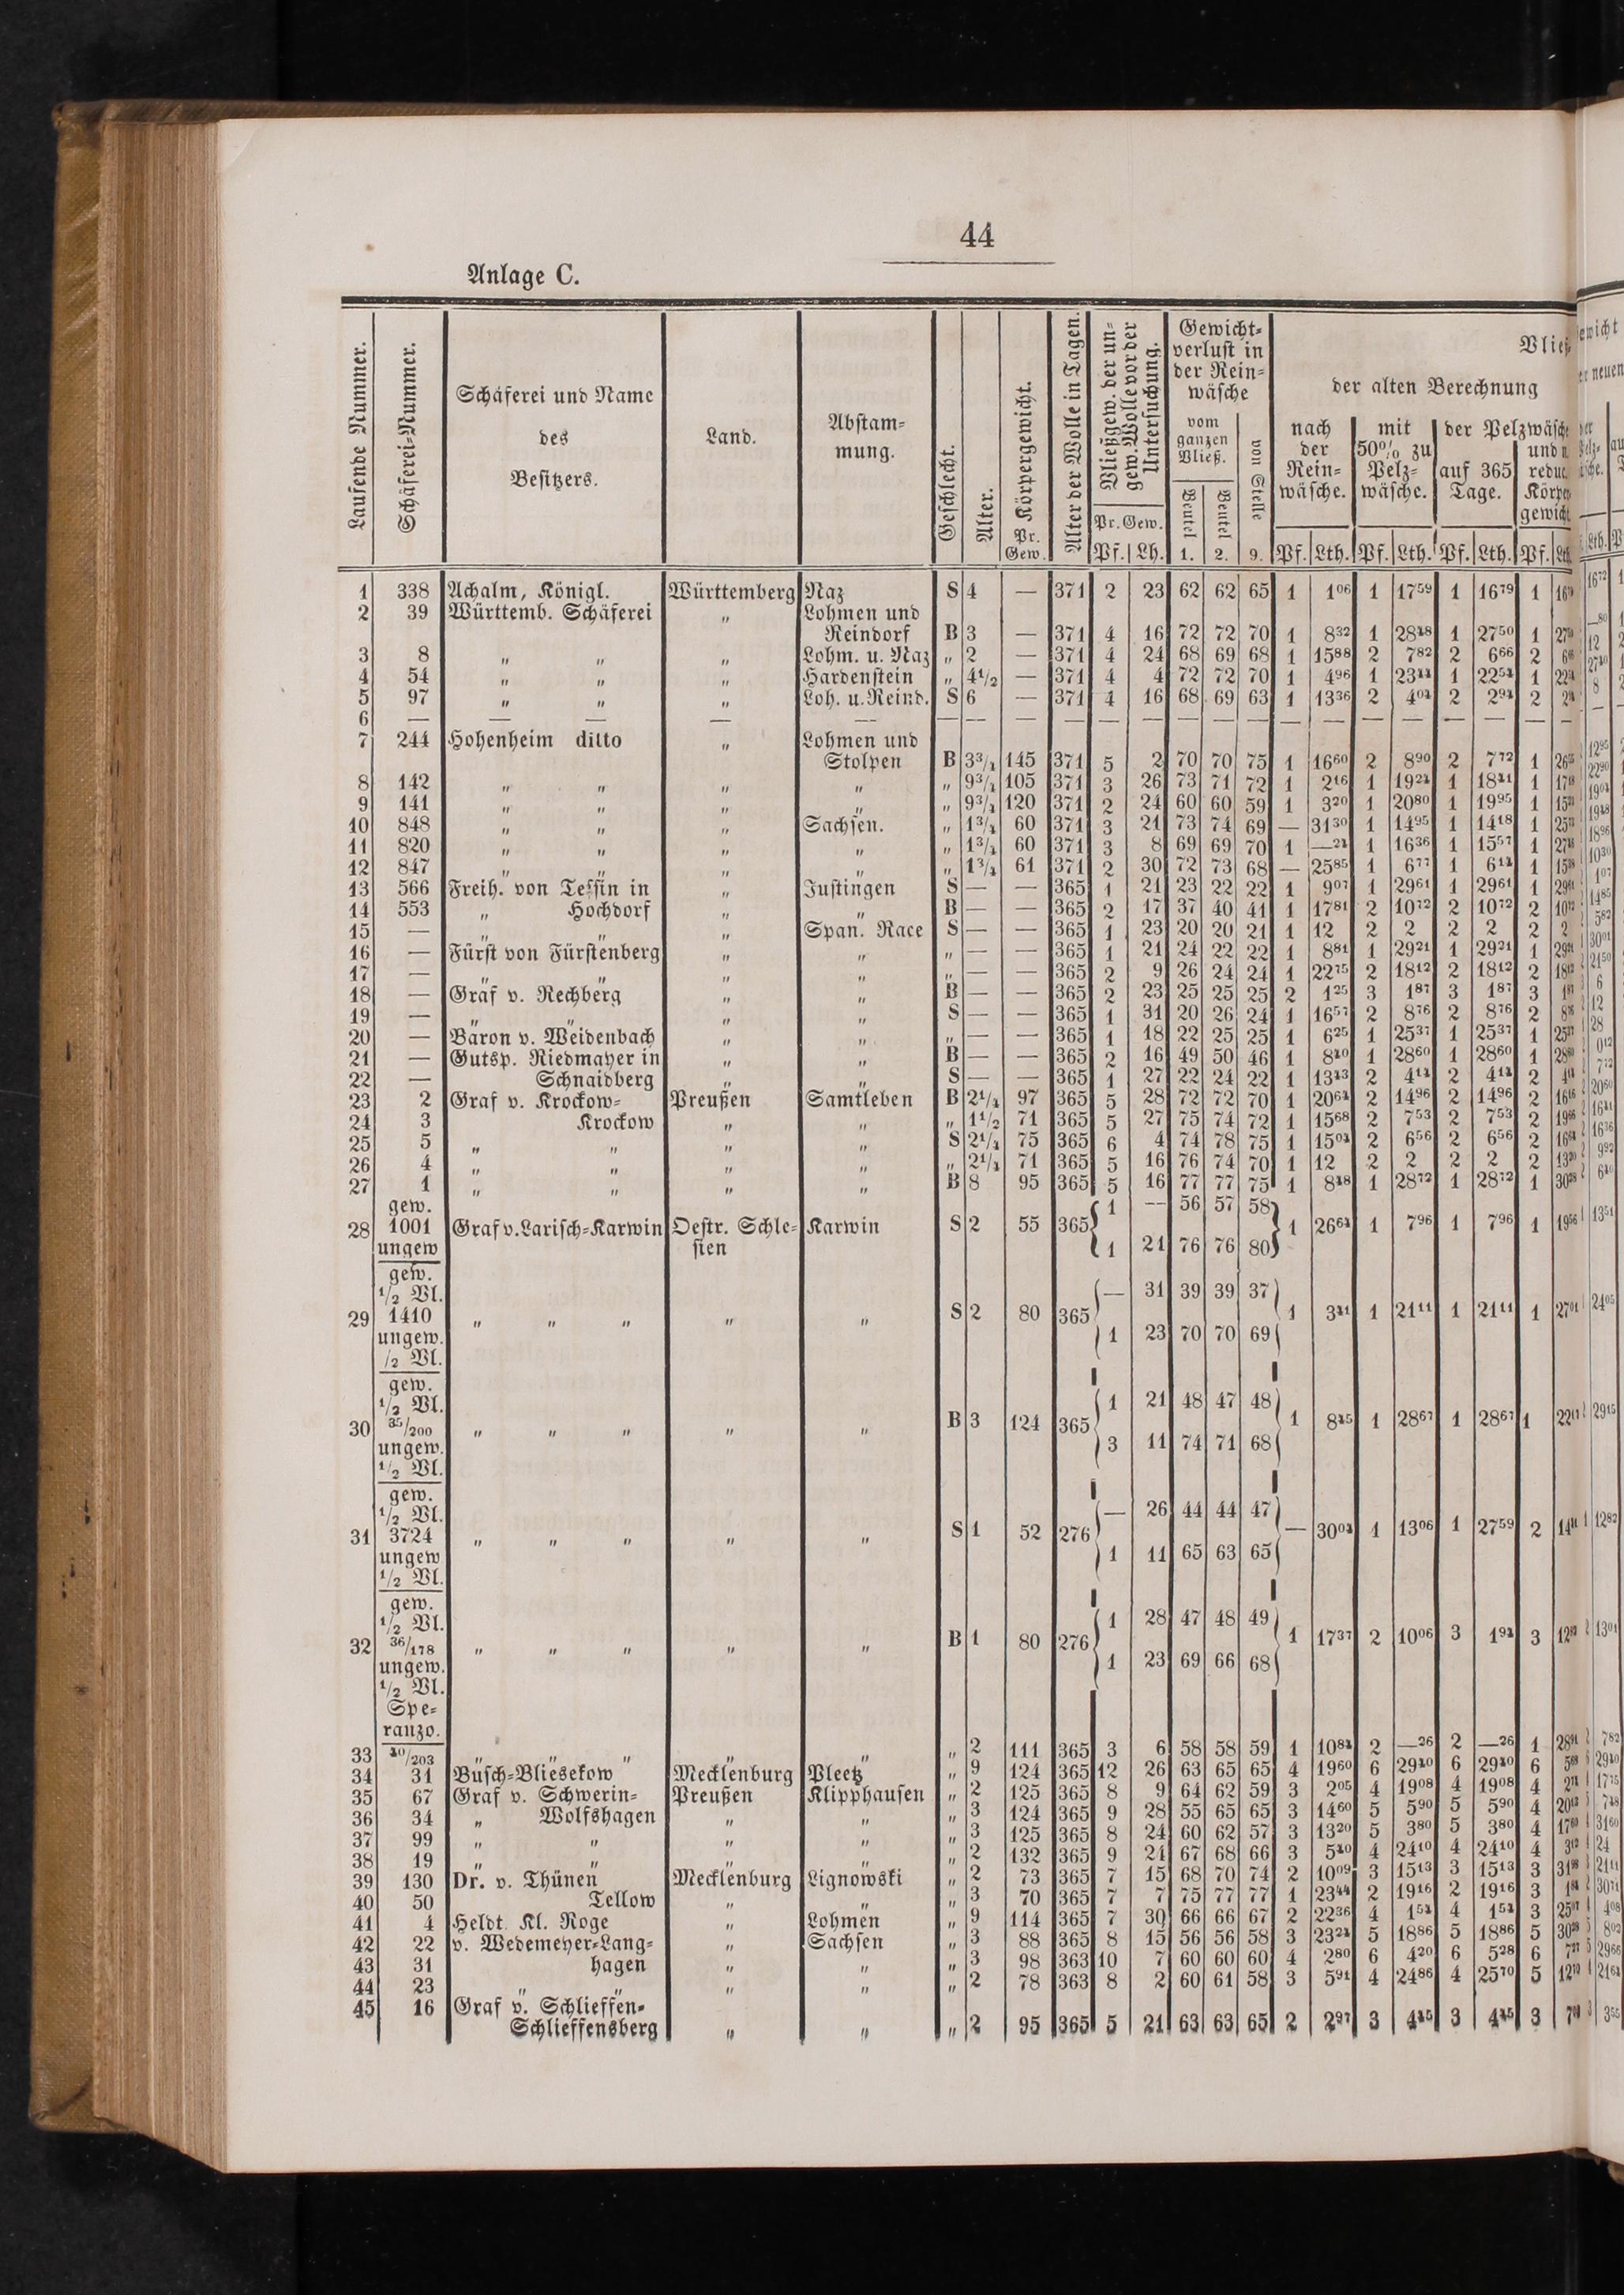 44
Anlage C.
Laufende Nummer.
Schäferei-Nummer.
Schäferei und Name
des
Besitzers.
Land.
Abstam-
mung.
Geschlecht.
Alter.
Körpergewicht.
Pr.
Gew.
Alter der Wolle in Tagen.
Vließgew. der un-
gew. Wolle vor der
Untersuchung.
Pr. Gew.
Pf. Lh.
Gewicht-
verlust in
der Rein-
wäsche
vom
ganzen
Vließ.
Beutel 1.
Beutel 2.
von Stelle 9.
der alten Berechnung
nach
der
Rein-
wäsche.
mit
50% zu
Pelz-
wäsche.
der Pelzwäsche
auf 365
Tage.
Pf. Lth. Pf. Lth. Pf. Lth. Pf.
1 338 Achalm, Königl. Württemberg Naz S 4 — 371 2 23 62 62 65 1 1 06 1 17 59 1 16 79 1
2 39 Württemb. Schäferei „ Lohmen und
Reindorf B 3 — 371 4 16 72 72 70 1 8 32 1 28 28 1 27 50 1
3 8 „ „ „ Lohm. u. Naz „ 2 — 371 4 24 68 69 68 1 15 88 2 7 82 2 6 66 2
4 54 „ „ „ Hardenstein „ 4 1/2 — 371 4 4 72 72 70 1 4 96 1 23 44 1 22 54 1
5 97 „ „ „ Loh. u. Reind. S 6 — 371 4 16 68 69 63 1 13 36 2 4 04 2 2 94 2
6 — — — — — — — — — — — — — — — — — — — — —
7 244 Hohenheim ditto „ Lohmen und
Stolpen B 3 3/4 145 371 5 2 70 70 75 1 16 60 2 8 90 2 7 72 1
8 142 „ „ „ „ „ 9 3/4 105 371 3 26 73 71 72 1 2 16 1 19 24 1 18 41 1
9 141 „ „ „ „ „ 9 3/4 120 371 2 24 60 60 59 1 3 20 1 20 80 1 19 95 1
10 848 „ „ „ Sachsen. „ 1 3/4 60 371 3 21 73 74 69 — 31 30 1 14 95 1 14 18 1
11 820 „ „ „ „ „ 1 3/4 60 371 3 8 69 69 70 1 — 24 1 16 36 1 15 57 1
12 847 „ „ „ „ „ 1 3/4 61 371 2 30 72 73 68 — 25 85 1 6 77 1 6 14 1
13 566 Freih. von Tessin in „ Justingen S — — 365 1 21 23 22 22 1 9 07 1 29 61 1 29 61 1
14 553 „ Hochdorf „ „ B — — 365 2 17 37 40 41 1 17 81 2 10 72 2 10 72 2
15 — „ „ „ Span. Race S — — 365 1 23 20 20 21 1 12 2 2 2 2 2 2
16 — Fürst von Fürstenberg „ „ „ — — 365 1 21 24 22 22 1 8 81 1 29 21 1 29 21 1
17 — „ „ „ „ „ — — 365 2 9 26 24 24 1 22 75 2 18 12 2 18 12 2
18 — Graf v. Rechberg „ „ B — — 365 2 23 25 25 25 2 1 25 3 1 87 3 1 87 3
19 — „ „ „ „ S — — 365 1 31 20 26 24 1 16 57 2 8 76 2 8 76 2
20 — Baron v. Weidenbach „ „ „ — — 365 1 18 22 25 25 1 6 25 1 25 37 1 25 37 1
21 — Gutsp. Riedmayer in „ „ B — — 365 2 16 49 50 46 1 8 40 1 28 60 1 28 60 1
22 — Schnaidberg „ „ S — — 365 1 27 22 24 22 1 13 43 2 4 14 2 4 14 2
23 2 Graf v. Krockow- Preußen Samtleben B 2 1/4 97 365 5 28 72 72 70 1 20 64 2 14 96 2 14 96 2
24 3 Krockow „ „ „ 1 1/2 71 365 5 27 75 74 72 1 15 68 2 7 53 2 7 53 2
25 5 „ „ „ „ S 2 1/4 75 365 6 4 74 78 75 1 15 04 2 6 56 2 6 56 2
26 4 „ „ „ „ „ 2 1/4 71 365 5 16 76 74 70 1 12 2 2 2 2 2
27 1 „ „ „ „ B 8 95 365 5 16 77 77 75 1 8 48 1 28 72 1 28 72 1
gew. 1 — 56 57 58
28 1001 Graf v. Larisch-Karwin Oestr. Schle- Karwin S 2 55 365 1 26 64 1 7 96 1 7 96 1
ungew sien 1 21 76 76 80
gew.
1/2 Vl. — 31 39 39 37
29 1410 „ „ „ „ „ S 2 80 365 1 3 41 1 21 11 1 21 11 1
ungew. 1 23 70 70 69
/2 Vl.
gew.
1/2 Vl. 1 21 48 47 48
30 35/200 „ „ „ „ „ B 3 124 365 1 8 45 1 28 67 1 28 67 1
ungew. 3 11 74 71 68
1/2 Vl.
gew.
1/2 Vl. — 26 44 44 47
31 3724 „ „ „ „ „ S 1 52 276 — 30 04 1 13 06 1 27 59 2
ungew 1 11 65 63 65
1/2 Vl.
gew.
1/2 Vl. 1 28 47 48 49
32 36/178 „ „ „ „ „ B 1 80 276 1 17 37 2 10 06 3 1 94 3
ungew. 1 23 69 66 68
1/2 Vl.
Spe-
ranzo.
33 40/203 „ „ „ „ „ „ 2 111 365 3 6 58 58 59 1 10 84 2 — 26 2 — 26 1
34 31 Busch-Bliesekow Mecklenburg Pleetz „ 9 124 365 12 26 63 65 65 4 19 60 6 29 40 6 29 40 6
35 67 Graf v. Schwerin- Preußen Klipphausen „ 2 125 365 8 9 64 62 59 3 2 05 4 19 08 4 19 08 4
36 34 „ Wolfshagen „ „ „ 3 124 365 9 28 55 65 65 3 14 60 5 5 90 5 5 90 4
37 99 „ „ „ „ „ 3 125 365 8 24 60 62 57 3 13 20 5 3 80 5 3 80 4
38 19 „ „ „ „ „ 2 132 365 9 21 67 68 66 3 5 40 4 24 10 4 24 10 4
39 130 Dr. v. Thünen Mecklenburg Lignowski „ 2 73 365 7 15 68 70 74 2 10 09 3 15 13 3 15 13 3
40 50 Tellow „ „ „ 3 70 365 7 7 75 77 77 1 23 44 2 19 16 2 19 16 3
41 4 Heldt. Kl. Roge „ Lohmen „ 9 114 365 7 30 66 66 67 2 22 36 4 1 54 4 1 54 3
42 22 v. Wedemeyer-Lang- „ Sachsen „ 3 88 365 8 15 56 56 58 3 23 24 5 18 86 5 18 86 5
43 31 hagen „ „ „ 3 98 363 10 7 60 60 60 4 2 80 6 4 20 6 5 28 6
44 23 „ „ „ „ „ 2 78 363 8 2 60 61 58 3 5 91 4 24 86 4 25 70 5
45 16 Graf v. Schlieffen-
Schlieffensberg „ „ „ 2 95 365 5 21 63 63 65 2 2 97 3 4 45 3 4 45 3